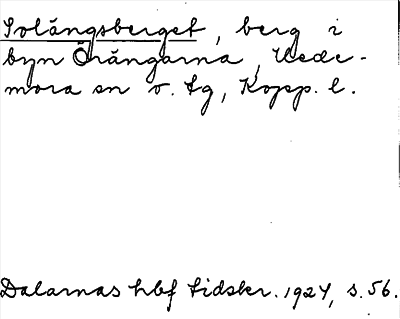 Solängsberget, berg i
byn Örängarna, Hede-
mora sn o. tg, Kopp. l.
Dalarnas hbf tidskr. 1924, s. 56.